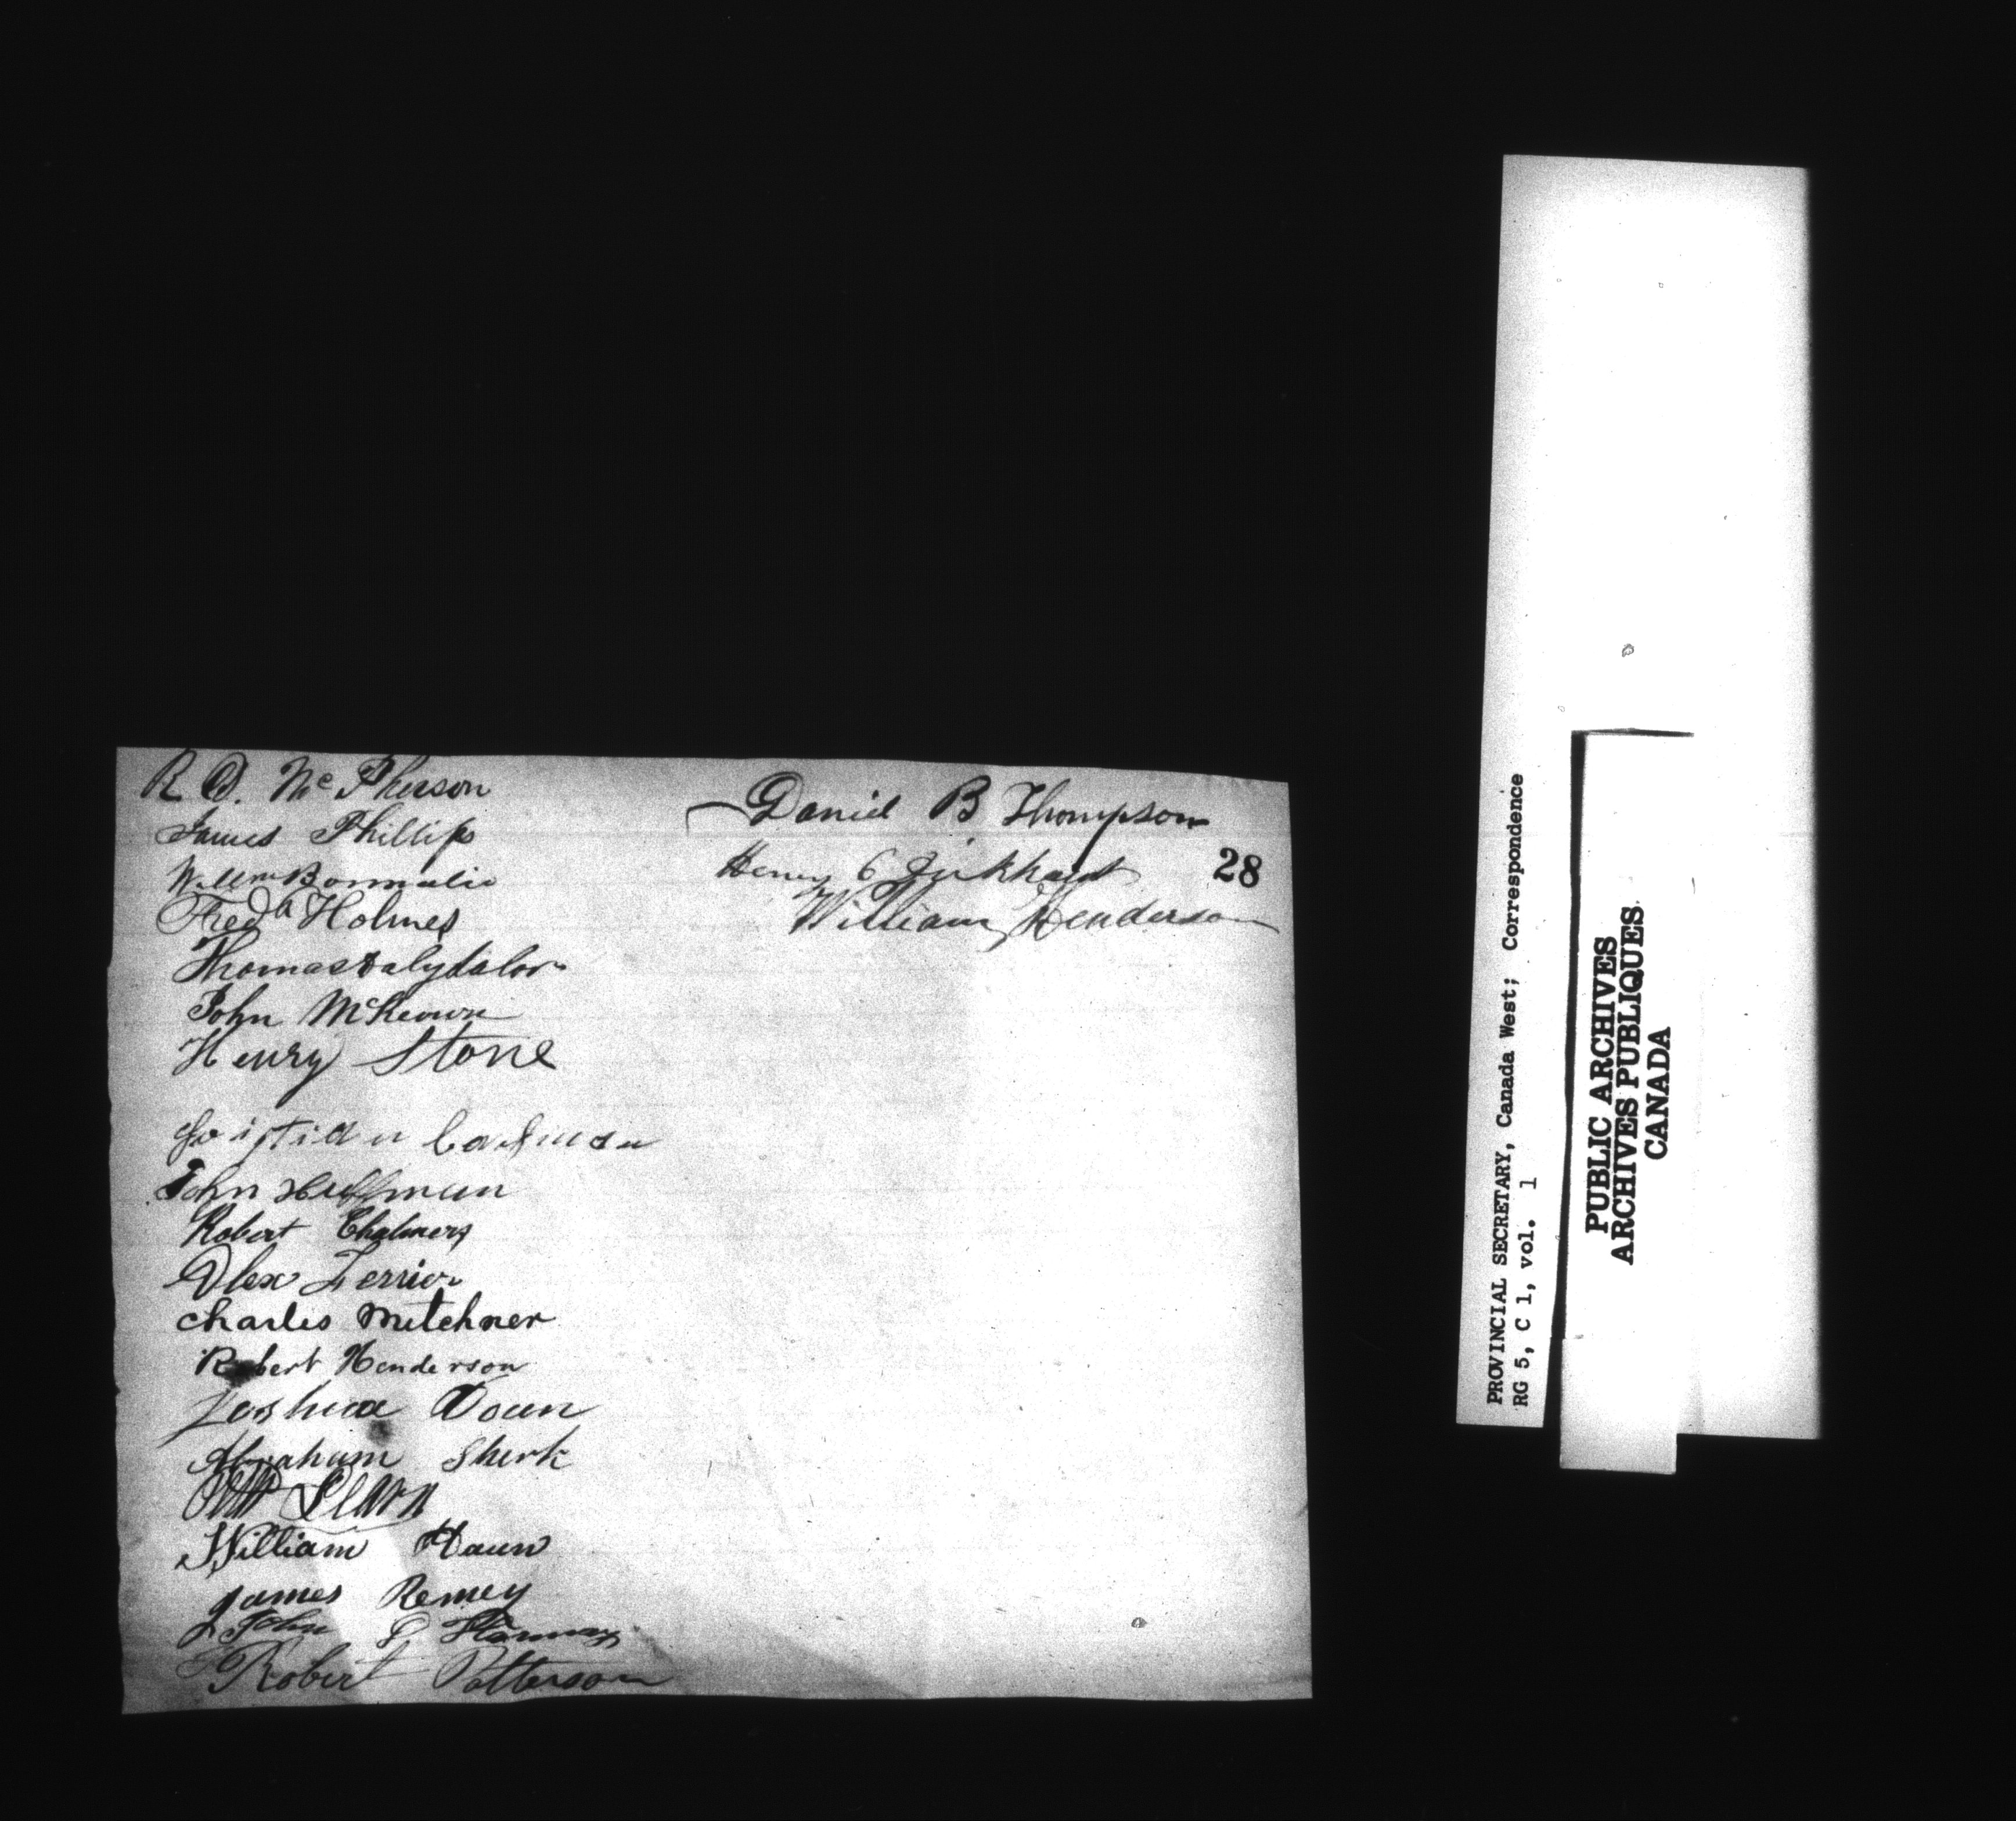 R. D. McPherson
James Phillips
Willm
Fred Holmes
Thomas
John McKeown
Henry Stone
John Huffman
Robert Chalmers
Alex Ferrier
Charles Mitchner
Robert Henderson
Joshua Doan
Abraham Sherk
William Haun
James Remey
John
Robert Patterson
Daniel B Thompson
Henry
28
William Henderson
PROVINCIAL SECRETARY, Canada West; Correspondence
RG 5, C 1, vol. 1
PUBLIC ARCHIVES
ARCHIVES PUBLIQUES
CANADA